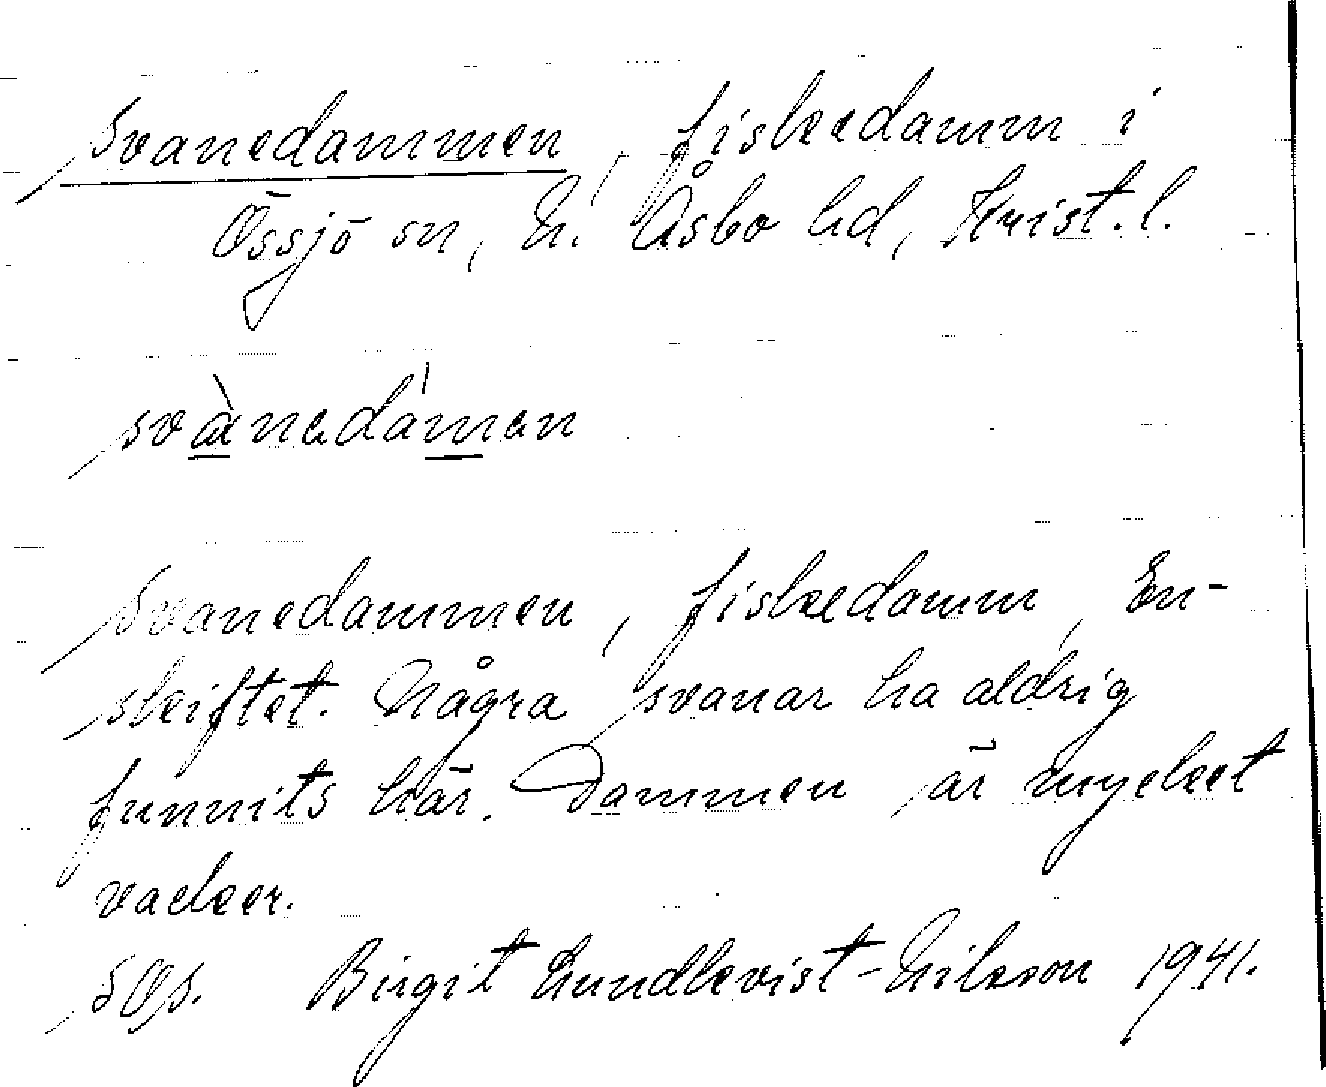 Svanedammen, fiskedamm i
Össjö sn, N. Åsbo hd, Krist. l.
svànedámen
Svanedammen, fiskedamm, En-
skiftet. Några svanar ha aldrig
funnits här. Dammen är mycket
vacker.
SOp. Birgit Lundkvist-Nilsson 1941.